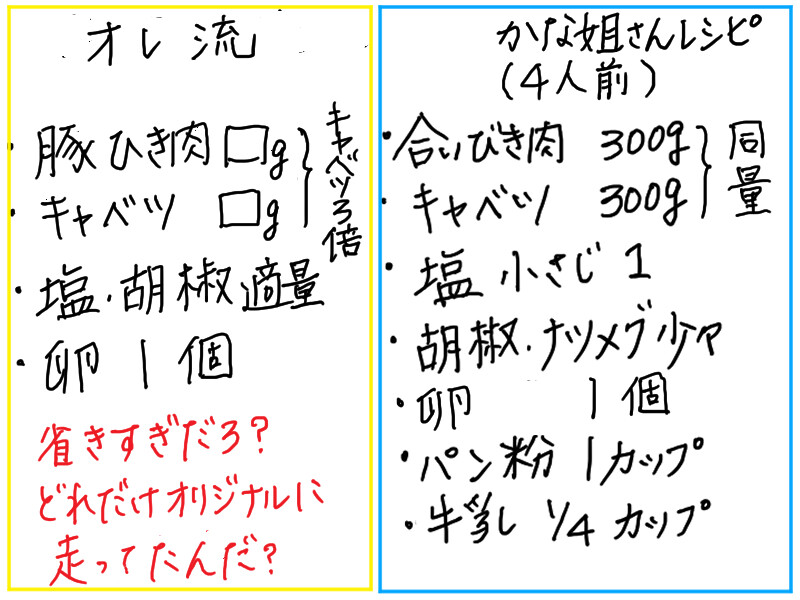 オレ流
・豚ひき肉 □g
・キャベツ □g
キャベツ3倍
・塩・胡椒適量
・卵 1個
省きすぎだろ?
どれだけオリジナルに
走ってたんだ?
かな姐さんレシピ
(4人前)
・合いびき肉 300g
・キャベツ 300g
同量
・塩 小さじ1
・胡椒・ナツメグ少々
・卵 1個
・パン粉 1カップ
・牛乳 1/4カップ